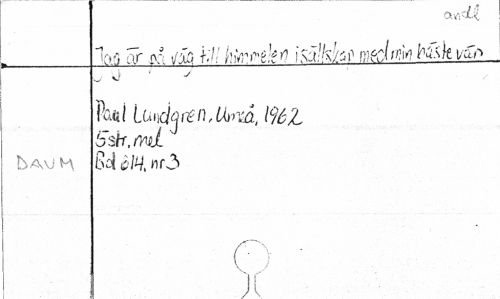 andl
Jag är på väg till himmelen i sällskap med min bäste vän
Paul Lundgren, Umeå, 1962
5 str, mel
DAUM Bd 614, nr 3